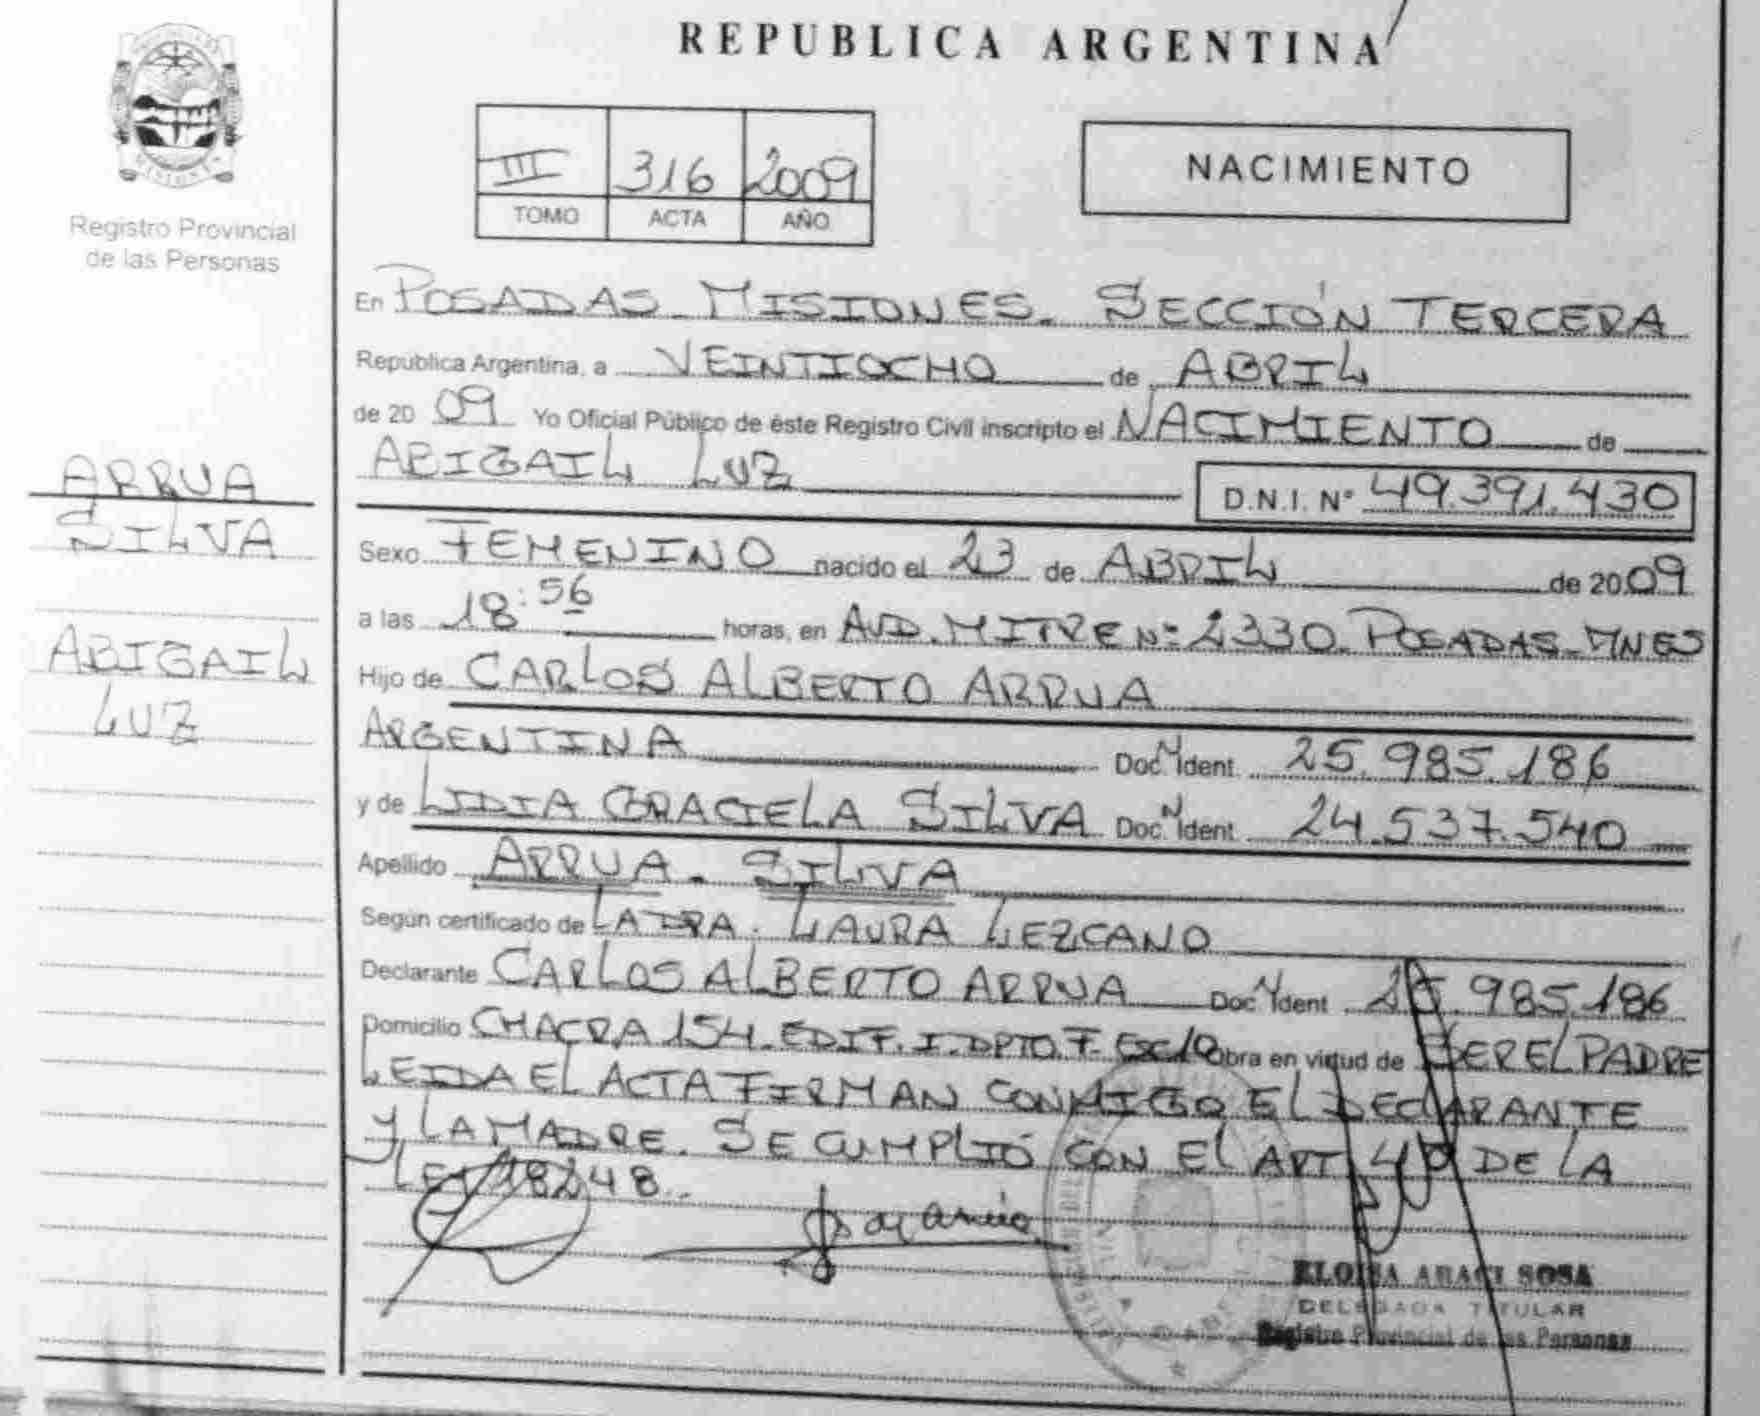 REPUBLICA ARGENTINA
PROVINCIA DE
MISIONES
Registro Provincial
de las Personas
III 316 2009
TOMO ACTA AÑO
NACIMIENTO
En POSADAS - MISIONES. SECCIÓN TERCERA
Republica Argentina, a VEINTIOCHO de ABRIL
de 20 09 Yo Oficial Público de éste Registro Civil inscripto el NACIMIENTO de
ABIGAIL LUZ D.N.I. Nº 49.391.430
ARRUA
SILVA
ABIGAIL
LUZ
Sexo FEMENINO nacido el 23 de ABRIL de 20 09
a las 18:56 horas, en AVD. MITRE Nº 2330. POSADAS - MNES
Hijo de CARLOS ALBERTO ARRUA
ARGENTINA Doc. N Ident. 25.985.186
y de LIDIA GRACIELA SILVA Doc. N Ident. 24.537.540
Apellido ARRUA - SILVA
Según certificado de LA DRA. LAURA LEZCANO
Declarante CARLOS ALBERTO ARRUA Doc. N Ident. 25.985.186
Domicilio CHACRA 154. EDIF. I. DPTO. F. ESC 10 Obra en virtud de SER EL PADRE
LEIDA EL ACTA FIRMAN CONMIGO EL DECLARANTE
Y LA MADRE. SE CUMPLIÓ CON EL ART 4º DE LA
LEY 18248.
ELOISA ARACI SOSA
DELEGADA TITULAR
Registro Provincial de las Personas